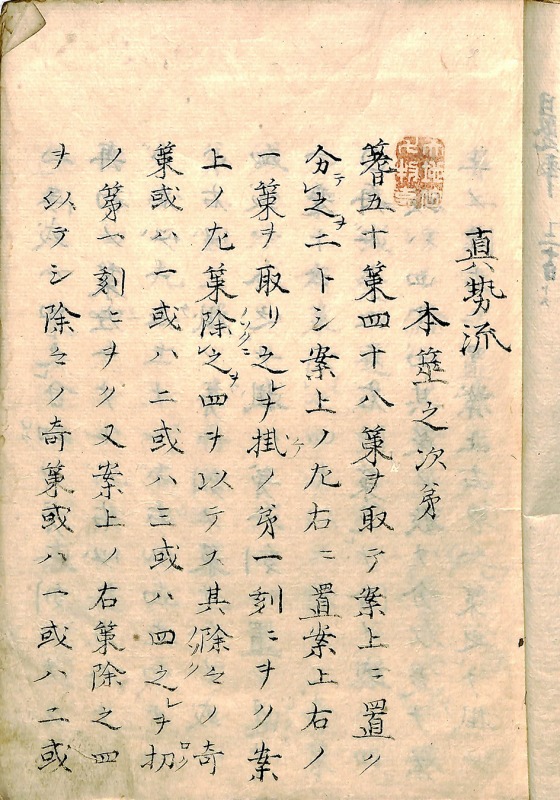 真勢流
本筮之次第
蓍五十策四十八策ヲ取テ案上ニ置ク
分テ之ヲ二トシ案上ノ左右ニ置案上右ノ
一策ヲ取リ之ヲ掛ケノ第一刻ニヲク案
上ノ左策除之ヲ四ヲ以テス其除之ノ奇
策或ハ一或ハ二或ハ三或ハ四之ヲ扐
ノ第一刻ニヲク又案上ノ右策除之四
ヲ以テシ除之ノ奇策或ハ一或ハ二或